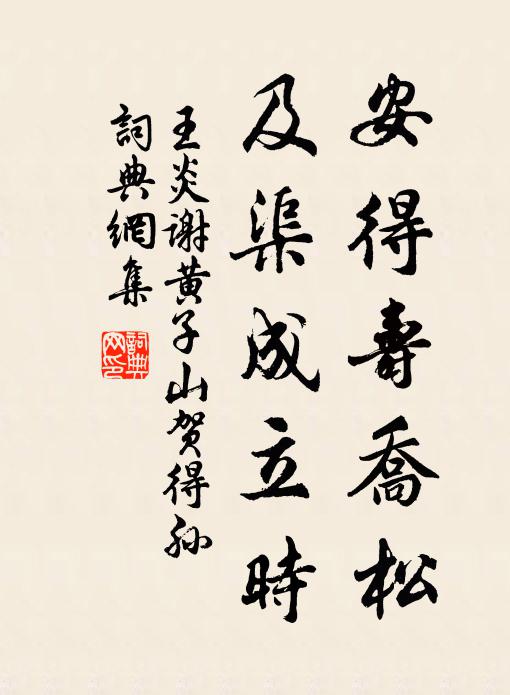 安得壽喬松
及渠成立時
王炎谢黄子山贺得孙
詞典網集
詞典网印